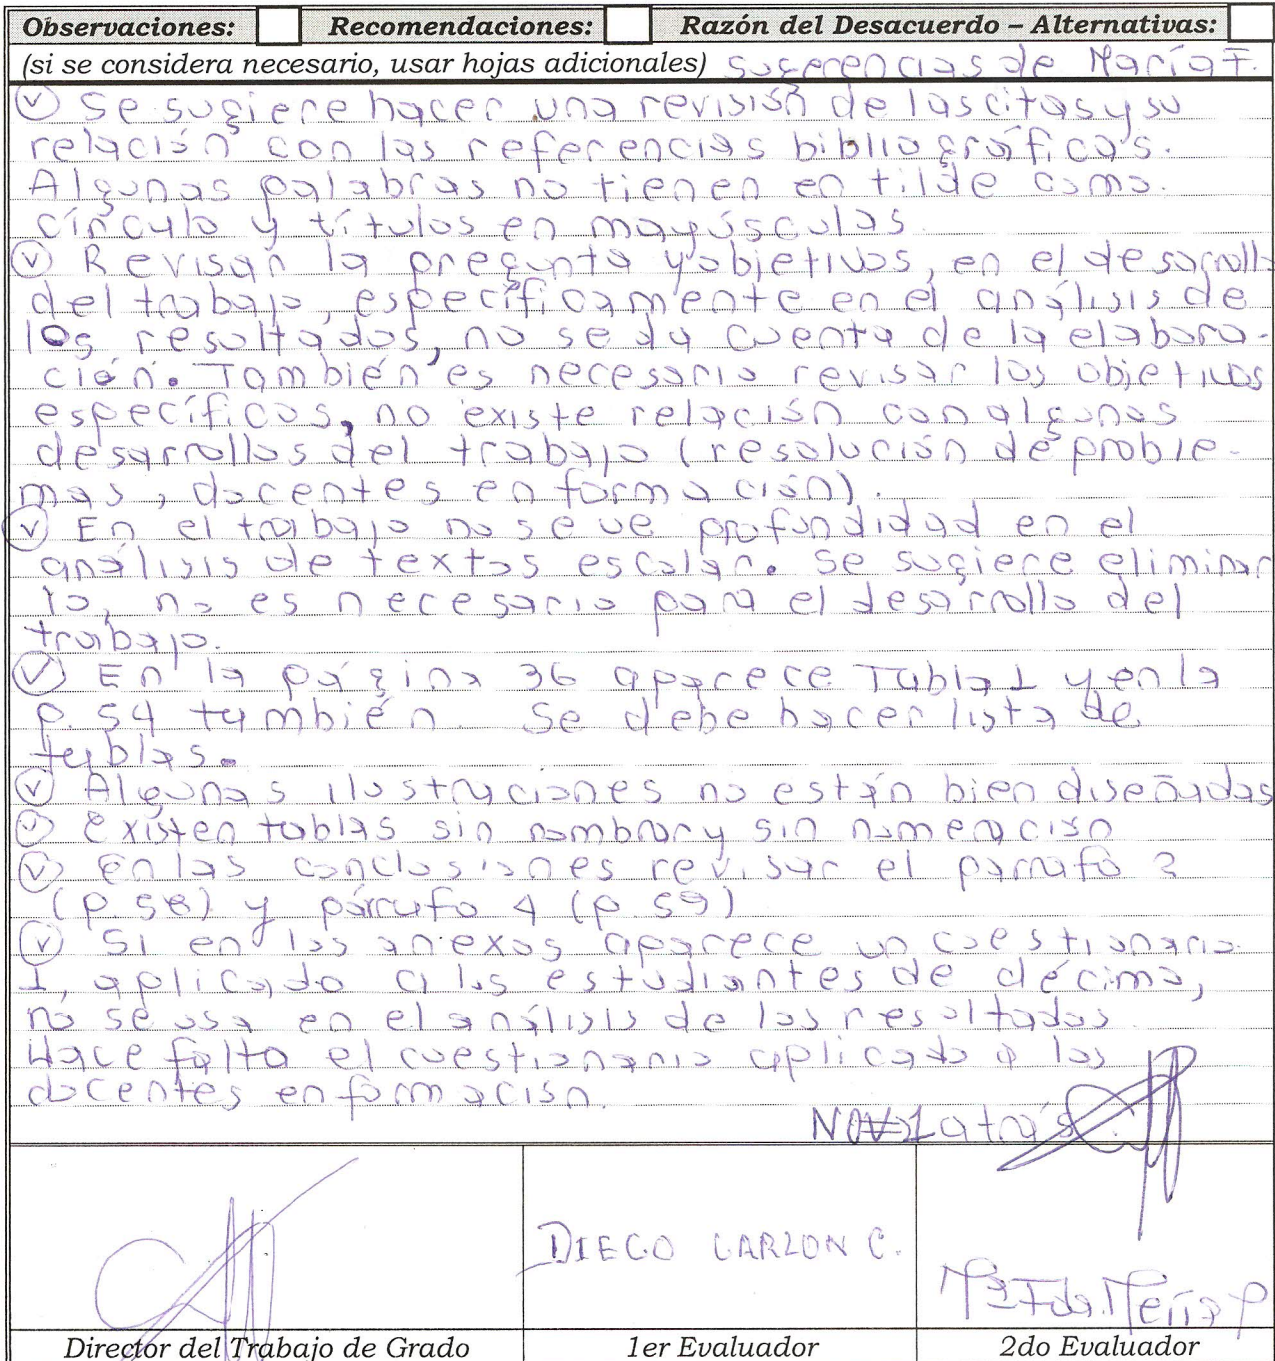 Observaciones: Recomendaciones: Razón del Desacuerdo – Alternativas:
(si se considera necesario, usar hojas adicionales) sugerencias de María F.
✓ Se sugiere hacer una revisión de las citas y su
relación con las referencias bibliográficas.
Algunas palabras no tienen en tilde como.
círculo y títulos en mayúsculas
✓ Revisar la pregunta y objetivos, en el desarrollo
del trabajo, específicamente en el análisis de
los resultados, no se da cuenta de la elabora-
ción. También es necesario revisar los objetivos
específicos, no existe relación con algunos
desarrollos del trabajo (resolución de proble-
mas, docentes en formación).
✓ En el trabajo no se ve profundidad en el
análisis de textos escolar. Se sugiere eliminar
lo, no es necesario para el desarrollo del
trabajo.
✓ En la página 36 aparece Tabla 1 y en la
p. 54 también. Se debe hacer lista de
tablas.
✓ Algunas ilustraciones no están bien diseñadas
✓ Existen tablas sin nombrar y sin numeración
✓ En las conclusiones revisar el párrafo 3
(p. 58) y párrafo 4 (p. 59)
✓ Si en los anexos aparece un cuestionario
1, aplicado a los estudiantes de décimo,
no se usa en el análisis de los resultados.
Hace falta el cuestionario aplicado a los
docentes en formación.
atrás
DIEGO GARZON C.
Mª Fda. Mejía P
Director del Trabajo de Grado 1er Evaluador 2do Evaluador